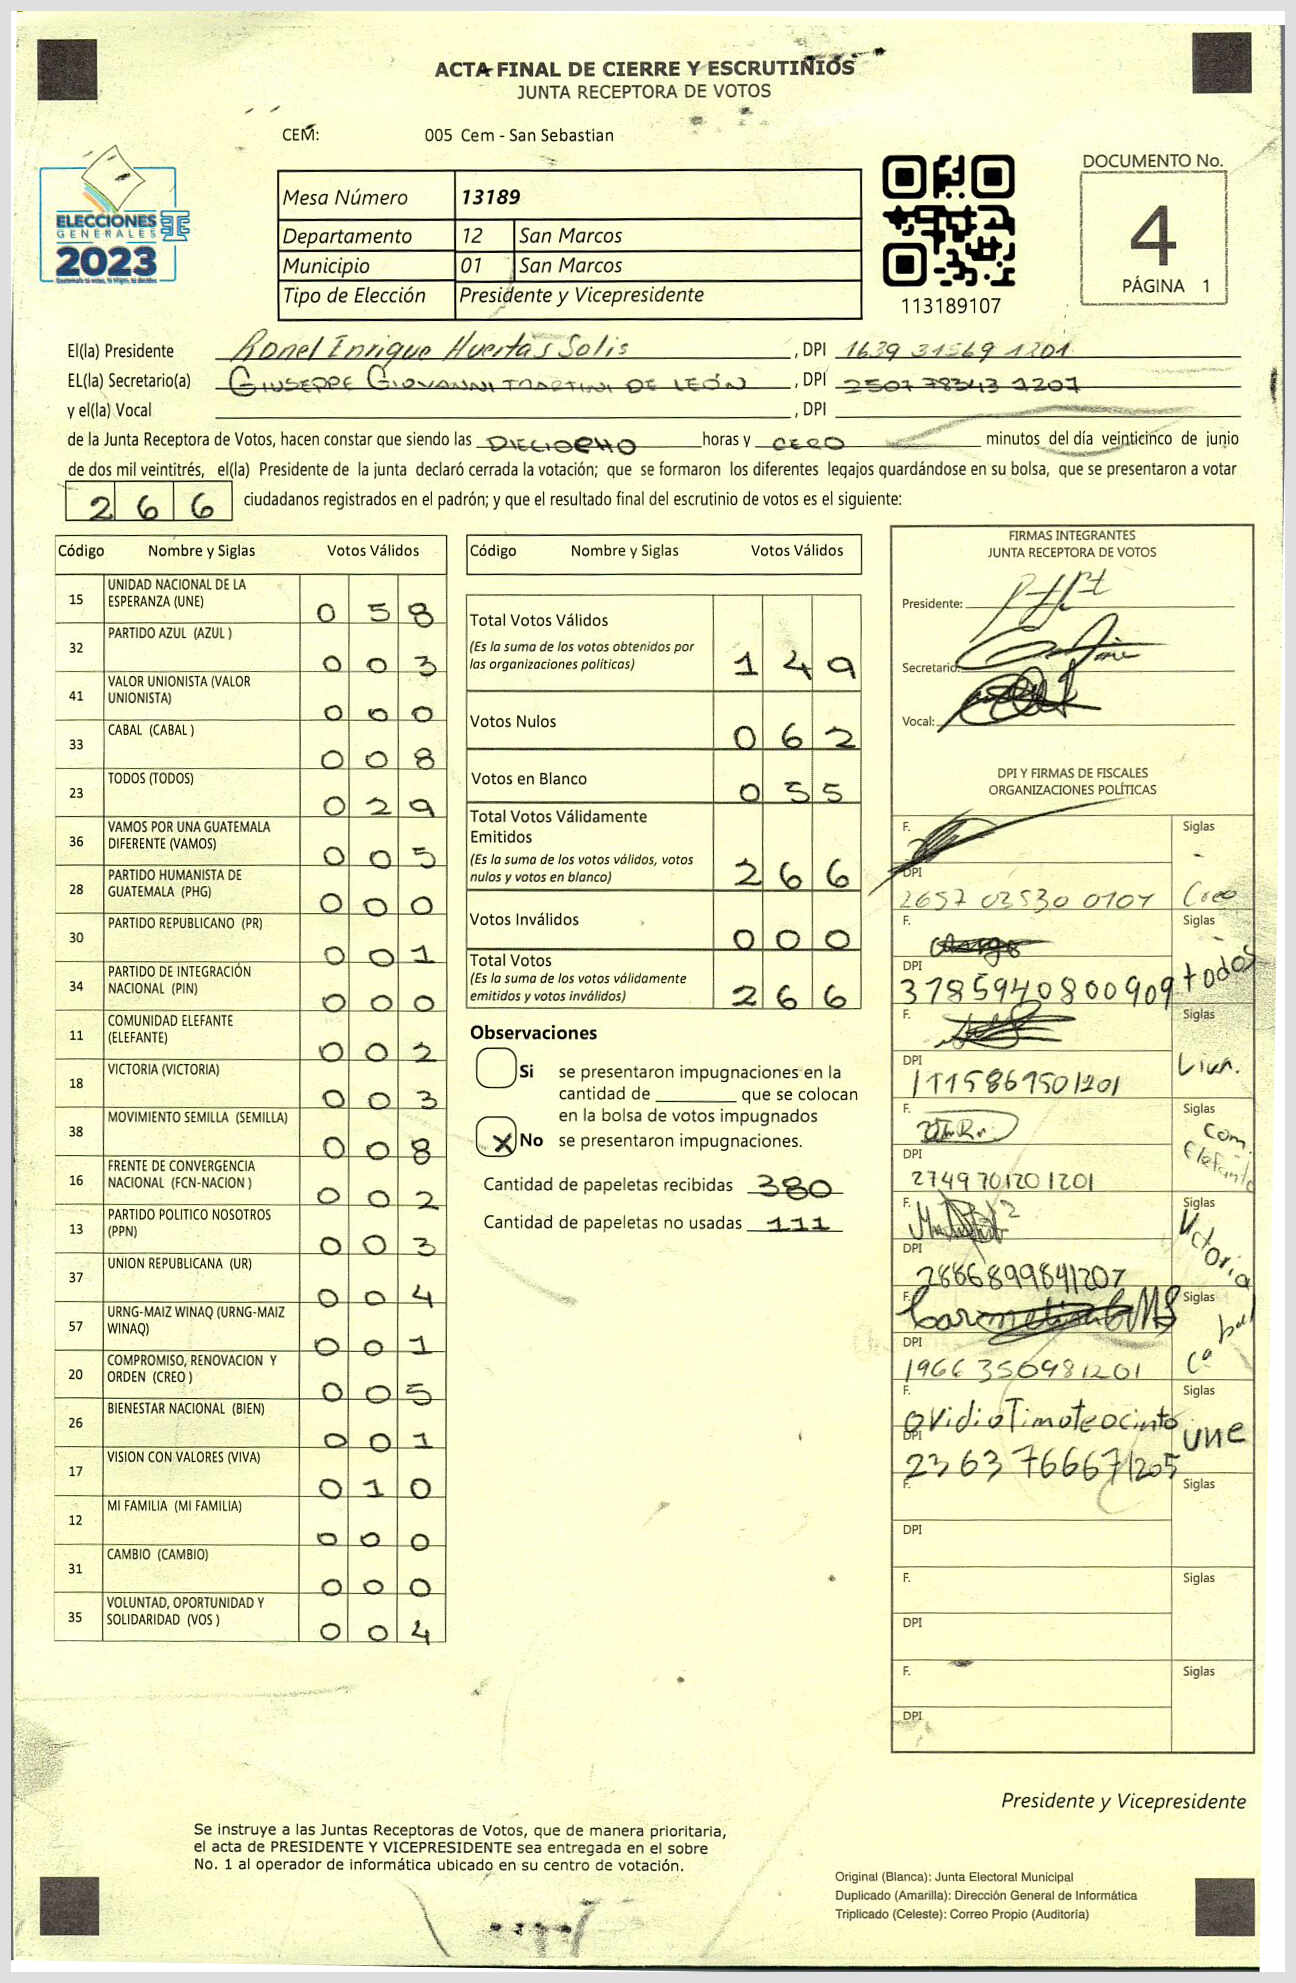 ACTA FINAL DE CIERRE Y ESCRUTINIOS
JUNTA RECEPTORA DE VOTOS
CEM: 005 Cem - San Sebastian
ELECCIONES
GENERALES
2023
Mesa Número 13189
Departamento 12 San Marcos
Municipio 01 San Marcos
Tipo de Elección Presidente y Vicepresidente
113189107
DOCUMENTO No.
4
PÁGINA 1
El(la) Presidente Ronel Enrique Huertas Solis, DPI 1639 31569 1201
EL(la) Secretario(a) GIUSEPPE GIOVANNI MARTINI DE LEÓN, DPI 2507 78343 1201
y el(la) Vocal , DPI
de la Junta Receptora de Votos, hacen constar que siendo las DIECIOCHO horas y CERO minutos del día veinticinco de junio
de dos mil veintitrés, el(la) Presidente de la junta declaró cerrada la votación; que se formaron los diferentes legajos guardándose en su bolsa, que se presentaron a votar
266 ciudadanos registrados en el padrón; y que el resultado final del escrutinio de votos es el siguiente:
Código Nombre y Siglas Votos Válidos
15 UNIDAD NACIONAL DE LA ESPERANZA (UNE) 058
32 PARTIDO AZUL (AZUL ) 003
41 VALOR UNIONISTA (VALOR UNIONISTA) 000
33 CABAL (CABAL ) 008
23 TODOS (TODOS) 029
36 VAMOS POR UNA GUATEMALA DIFERENTE (VAMOS) 005
28 PARTIDO HUMANISTA DE GUATEMALA (PHG) 000
30 PARTIDO REPUBLICANO (PR) 001
34 PARTIDO DE INTEGRACIÓN NACIONAL (PIN) 000
11 COMUNIDAD ELEFANTE (ELEFANTE) 002
18 VICTORIA (VICTORIA) 003
38 MOVIMIENTO SEMILLA (SEMILLA) 008
16 FRENTE DE CONVERGENCIA NACIONAL (FCN-NACION ) 002
13 PARTIDO POLITICO NOSOTROS (PPN) 003
37 UNION REPUBLICANA (UR) 004
57 URNG-MAIZ WINAQ (URNG-MAIZ WINAQ) 001
20 COMPROMISO, RENOVACION Y ORDEN (CREO ) 005
26 BIENESTAR NACIONAL (BIEN) 001
17 VISION CON VALORES (VIVA) 010
12 MI FAMILIA (MI FAMILIA) 000
31 CAMBIO (CAMBIO) 000
35 VOLUNTAD, OPORTUNIDAD Y SOLIDARIDAD (VOS ) 004
Código Nombre y Siglas Votos Válidos
Total Votos Válidos 149
(Es la suma de los votos obtenidos por
las organizaciones políticas)
Votos Nulos 062
Votos en Blanco 055
Total Votos Válidamente
Emitidos 266
(Es la suma de los votos válidos, votos
nulos y votos en blanco)
Votos Inválidos 000
Total Votos 266
(Es la suma de los votos válidamente
emitidos y votos inválidos)
Observaciones
Si se presentaron impugnaciones en la
cantidad de ________ que se colocan
en la bolsa de votos impugnados
X No se presentaron impugnaciones.
Cantidad de papeletas recibidas 380
Cantidad de papeletas no usadas 111
FIRMAS INTEGRANTES
JUNTA RECEPTORA DE VOTOS
Presidente:
Secretario:
Vocal:
DPI Y FIRMAS DE FISCALES
ORGANIZACIONES POLÍTICAS
F. Siglas
DPI 2657 02530 0101 Creo
F. Siglas
DPI 3785940800909 todos
F. Siglas
DPI 1115869501201
F. Siglas
Com. Elefante
DPI 2749701201201
F. Siglas
Victoria
DPI 2886899841207
F. Siglas
Cabal
DPI 1966350981201
F. Siglas
Ovidio Timoteo cinto
UNE
DPI 2363766671205
F. Siglas
DPI
F. Siglas
DPI
F. Siglas
DPI
Presidente y Vicepresidente
Se instruye a las Juntas Receptoras de Votos, que de manera prioritaria,
el acta de PRESIDENTE Y VICEPRESIDENTE sea entregada en el sobre
No. 1 al operador de informática ubicado en su centro de votación.
Original (Blanca): Junta Electoral Municipal
Duplicado (Amarilla): Dirección General de Informática
Triplicado (Celeste): Correo Propio (Auditoría)